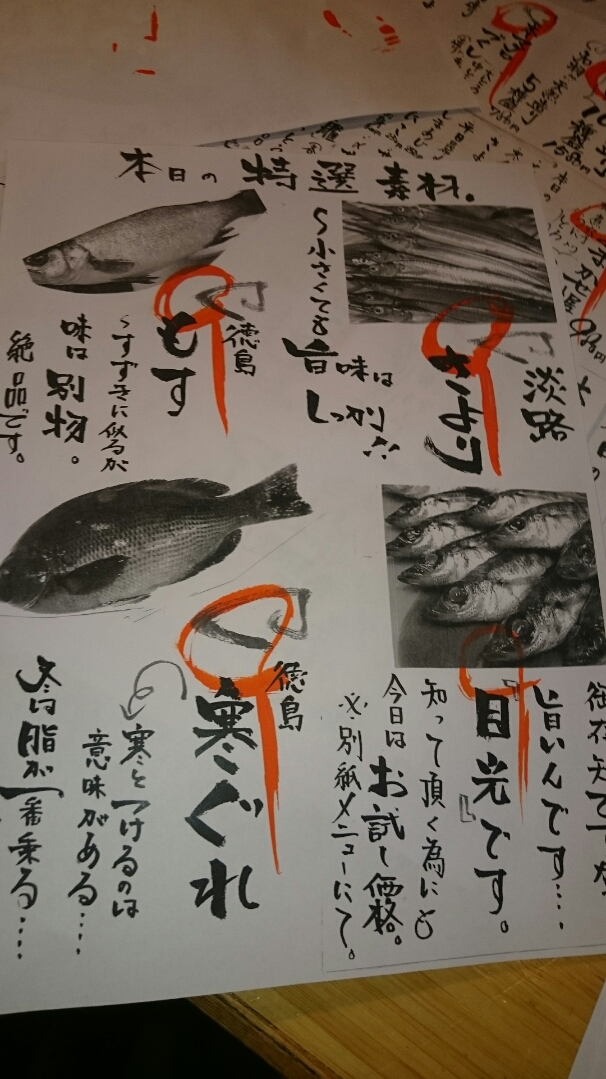 本日の特選素材。
淡路
さより
〜小さくても
旨味は
しっかり
徳島
もす
〜すずきに似るが
味は別物。
絶品です。
旨いんです....
『目光』です。
知って頂く為にも
今日はお試し価格。
※別紙メニューにて。
徳島
寒ぐれ
寒とつけるのは
意味がある....
冬は脂が一番乗る....